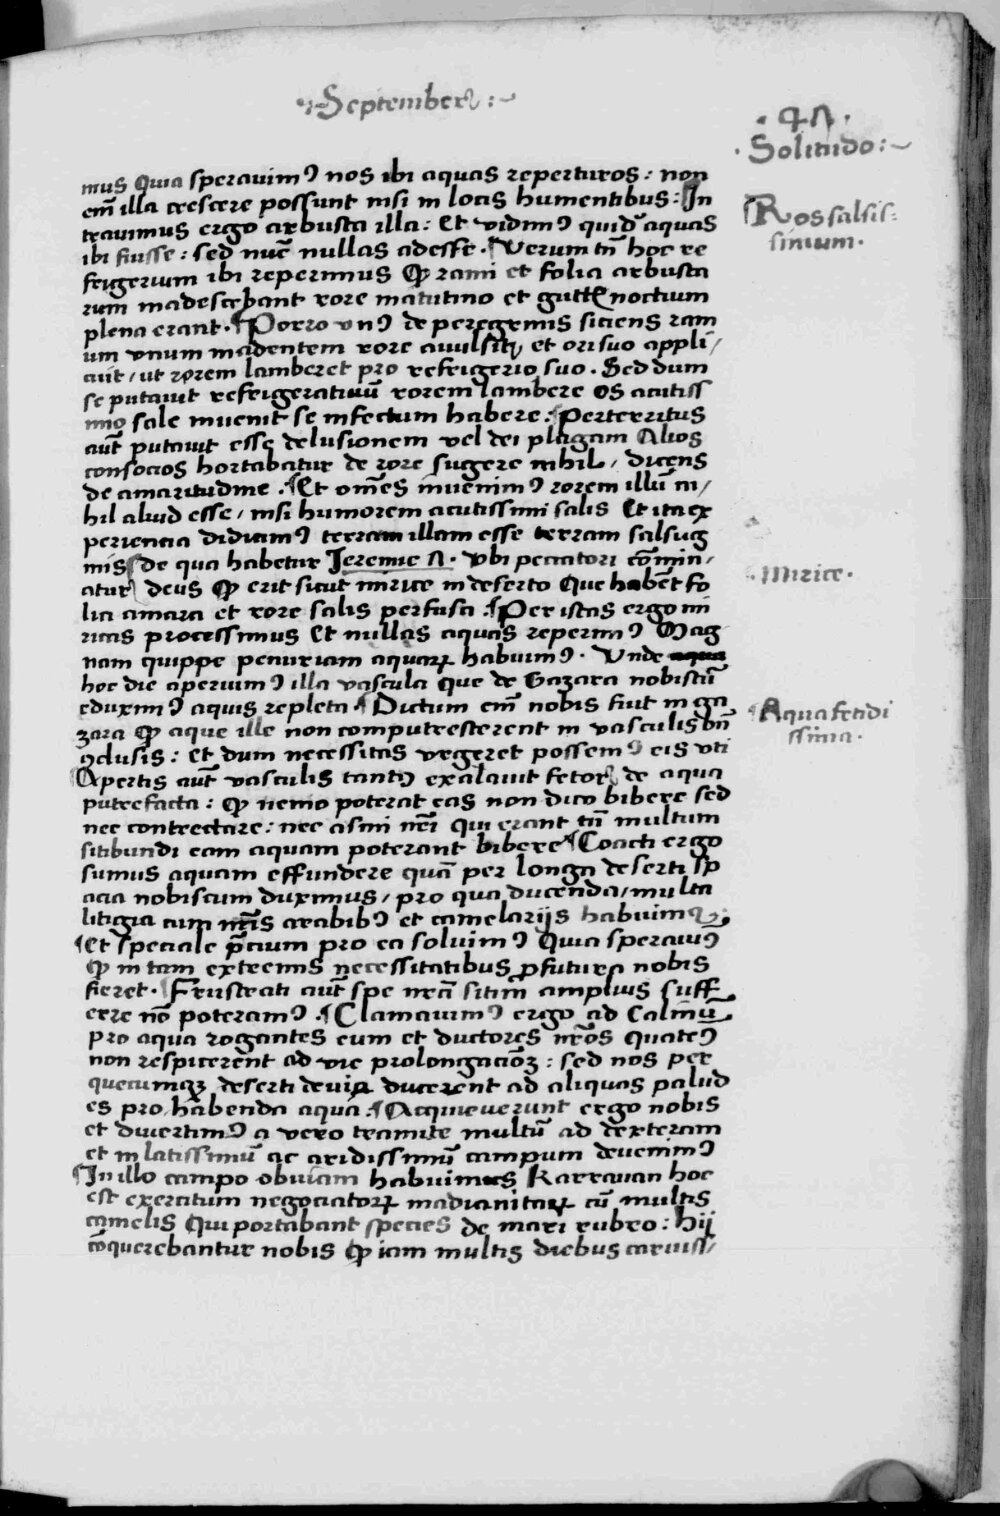 September:
·47·
Solitudo:
mus Quia sperauimꝰ nos ibi aquas reperturos: non
em̄ illa crescere possunt nisi in locis humentibus: In
trauimus ergo arbusta illa: Et vidimꝰ quidē aquas
ibi fuisse: sed nūc nullas adesse. Verum tn̄ hoc re
frigerium ibi reperimus ꝙ rami et folia arbusta
rum madescebant rore matutino et gutt noctium
plena erant. Porro vnꝰ de peregrinis siciens ram
um vnum madentem rore auulsit et ori suo appli/
cuit/ ut rorem lamberet pro refrigerio suo. Sed dum
se putauit refrigeratiuū rorem lambere os acutiss
imo sale inuenit se infectum habere: Perterritus
aūt putauit esse delusionem vel dei plagam Alios
consocios hortabatur de rore sugere nihil, dicens
de amaritudine. Et om̄es inuenimꝰ rorem illū ni/
hil aliud esse/ nisi humorem acutissimi salis Et ita ex
periencia didicimꝰ terram illam esse terram salsug
inis de qua habetur Jeremie A. vbi peccatori cōmin/
atur deus ꝙ erit sicut mirice in deserto Que habēt fo
lia amara et rore salis perfusa: Per istas ergo mi
ricas processimus Et nullas aquas reperimꝰ Mag
nam quippe penuriam aquaꝝ habuimꝰ. Vnde aqua
hoc die aperuimꝰ illa vascula que de Gazara nobiscū
eduximꝰ aquis repleta Dictum em̄ nobis fuit in ga
zara ꝙ aque ille non computrescerent in vasculis bn̄
ꝯclusis: et dum necessitas vrgeret possemꝰ eis vti
Apertis aūt vasculis tantꝰ exalauit fetor de aqua
putrefacta: ꝙ nemo poterat eas non dico bibere sed
nec contrectare: nec asini nr̄i qui erant tn̄ multum
sitibundi eam aquam poterant bibere Coacti ergo
sumus aquam effundere quā per longa deserti sp
acia nobiscum duximus, pro qua ducenda, multa
litigia cum nr̄is arabibꝰ et camelarijs habuimꝰ:
Et speciale p̄cium pro ea soluimꝰ Quia sperauimꝰ
ꝙ in tam extremis necessitatibus ꝓfutura nobis
fieret. Frustrati aūt spe nr̄a sitim̄ amplius suff
erre nō poteramꝰ. Clamauimꝰ ergo ad Calinū
pro aqua rogantes eum et ductores nr̄os quatenꝰ
non respicerent ad vie prolongacōꝫ: sed nos per
quecumqꝫ deserti deuia ducerent ad aliquas palud
es pro habenda aqua: Acquieuerunt ergo nobis
et diuertimꝰ a vero tramite multū ad dexteram
et in latissimū ac aridissimū campum deuenimꝰ
In illo campo obuiam habuimus Karrauan hoc
est exercitum negociatoꝝ madianitaꝝ cū multis
camelis Qui portabant species de mari rubro: hij
cōquerebantur nobis ꝙ iam multis diebus caruiss/
Ros salsis=
simum.
Mirice.
Aqua fetidi
ssima.